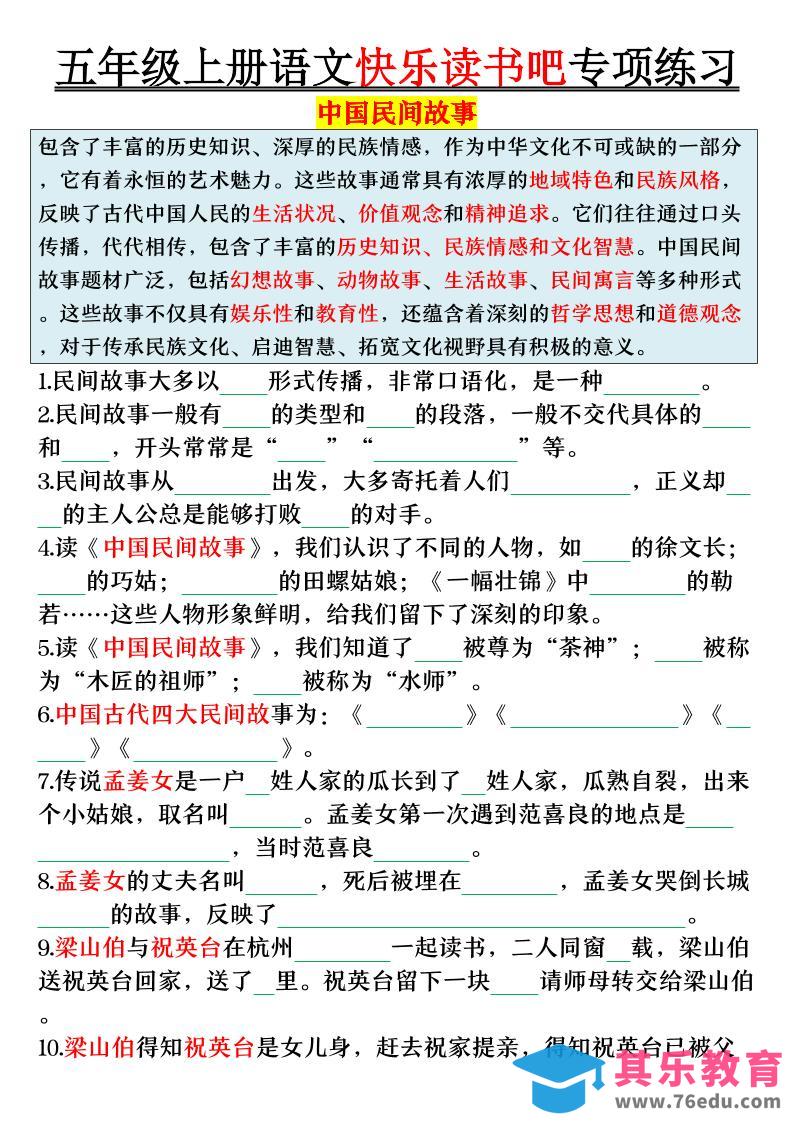 五年级上册语文快乐读书吧专项练习
中国民间故事
包含了丰富的历史知识、深厚的民族情感，作为中华文化不可或缺的一部分
，它有着永恒的艺术魅力。这些故事通常具有浓厚的地域特色和民族风格，
反映了古代中国人民的生活状况、价值观念和精神追求。它们往往通过口头
传播，代代相传，包含了丰富的历史知识、民族情感和文化智慧。中国民间
故事题材广泛，包括幻想故事、动物故事、生活故事、民间寓言等多种形式
。这些故事不仅具有娱乐性和教育性，还蕴含着深刻的哲学思想和道德观念
，对于传承民族文化、启迪智慧、拓宽文化视野具有积极的意义。
1.民间故事大多以____形式传播，非常口语化，是一种________。
2.民间故事一般有____的类型和____的段落，一般不交代具体的____
和____，开头常常是“____”“____________”等。
3.民间故事从________出发，大多寄托着人们__________，正义却__
__的主人公总是能够打败____的对手。
4.读《中国民间故事》，我们认识了不同的人物，如____的徐文长；
____的巧姑；________的田螺姑娘；《一幅壮锦》中________的勒
若……这些人物形象鲜明，给我们留下了深刻的印象。
5.读《中国民间故事》，我们知道了____被尊为“茶神”；____被称
为“木匠的祖师”；____被称为“水师”。
6.中国古代四大民间故事为：《________》《______________》《__
____》《____________》。
7.传说孟姜女是一户__姓人家的瓜长到了__姓人家，瓜熟自裂，出来
个小姑娘，取名叫______。孟姜女第一次遇到范喜良的地点是____
________________，当时范喜良________。
8.孟姜女的丈夫名叫______，死后被埋在________，孟姜女哭倒长城
______的故事，反映了__________________________________。
9.梁山伯与祝英台在杭州________一起读书，二人同窗__载，梁山伯
送祝英台回家，送了__里。祝英台留下一块____请师母转交给梁山伯
。
10.梁山伯得知祝英台是女儿身，赶去祝家提亲，得知祝英台已被父
其乐教育
www.76edu.com